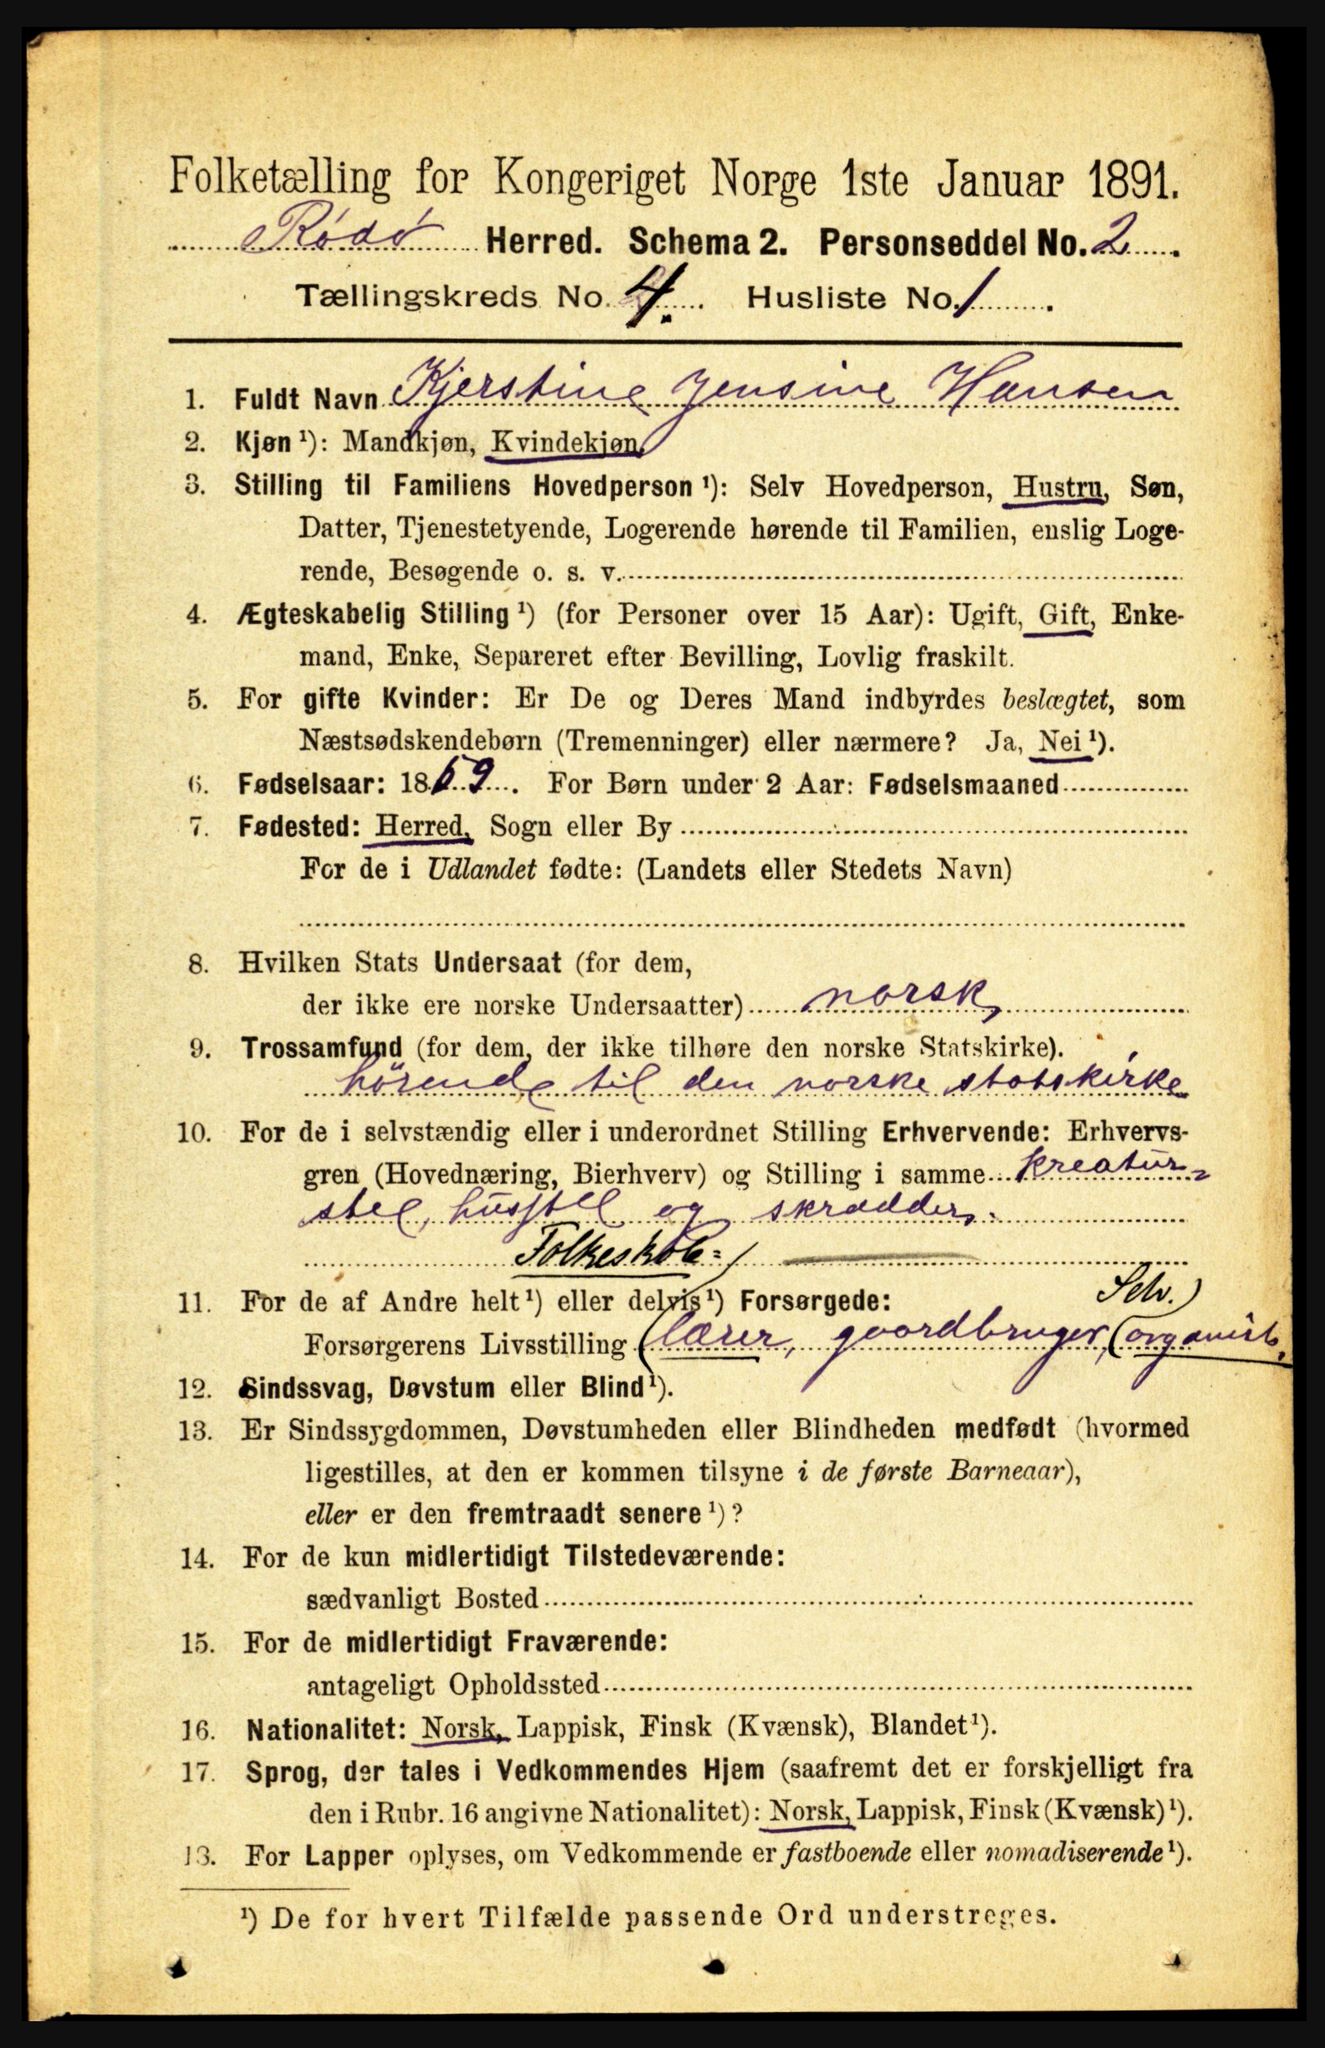 Folketælling for Kongeriget Norge 1ste Januar 1891.
Rödö Herred. Schema 2. Personseddel No. 2.
Tællingskreds No. 4. Husliste No. 1.
1. Fuldt Navn Kjerstine Jensine Hansen
2. Kjøn ¹): Mandkjøn, Kvindekjøn
3. Stilling til Familiens Hovedperson ¹): Selv Hovedperson, Hustru, Søn,
Datter, Tjenestetyende, Logerende hørende til Familien, enslig Loge-
rende, Besøgende o. s. v.
4. Ægteskabelig Stilling ¹) (for Personer over 15 Aar): Ugift, Gift, Enke-
mand, Enke, Separeret efter Bevilling, Lovlig fraskilt.
5. For gifte Kvinder: Er De og Deres Mand indbyrdes beslægtet, som
Næstsødskendebørn (Tremenninger) eller nærmere? Ja, Nei ¹).
6. Fødselsaar: 1869. For Børn under 2 Aar: Fødselsmaaned
7. Fødested: Herred, Sogn eller By
For de i Udlandet fødte: (Landets eller Stedets Navn)
8. Hvilken Stats Undersaat (for dem,
der ikke ere norske Undersaatter) norsk,
9. Trossamfund (for dem, der ikke tilhøre den norske Statskirke).
hörende til den norske statskirke
10. For de i selvstændig eller i underordnet Stilling Erhvervende: Erhvervs-
gren (Hovednæring, Bierhverv) og Stilling i samme kreatur-
stel, husstel og skrædder.
Folkeskole=
11. For de af Andre helt ¹) eller delvis ¹) Forsørgede: Selv.)
Forsørgerens Livsstilling (lærer, gaardbruger, (organist.
12. Sindssvag, Døvstum eller Blind ¹).
13. Er Sindssygdommen, Døvstumheden eller Blindheden medfødt (hvormed
ligestilles, at den er kommen tilsyne i de første Barneaar),
eller er den fremtraadt senere ¹)?
14. For de kun midlertidigt Tilstedeværende:
sædvanligt Bosted
15. For de midlertidigt Fraværende:
antageligt Opholdssted
16. Nationalitet: Norsk, Lappisk, Finsk (Kvænsk), Blandet ¹).
17. Sprog, der tales i Vedkommendes Hjem (saafremt det er forskjelligt fra
den i Rubr. 16 angivne Nationalitet): Norsk, Lappisk, Finsk (Kvænsk) ¹).
18. For Lapper oplyses, om Vedkommende er fastboende eller nomadiserende ¹).
¹) De for hvert Tilfælde passende Ord understreges.